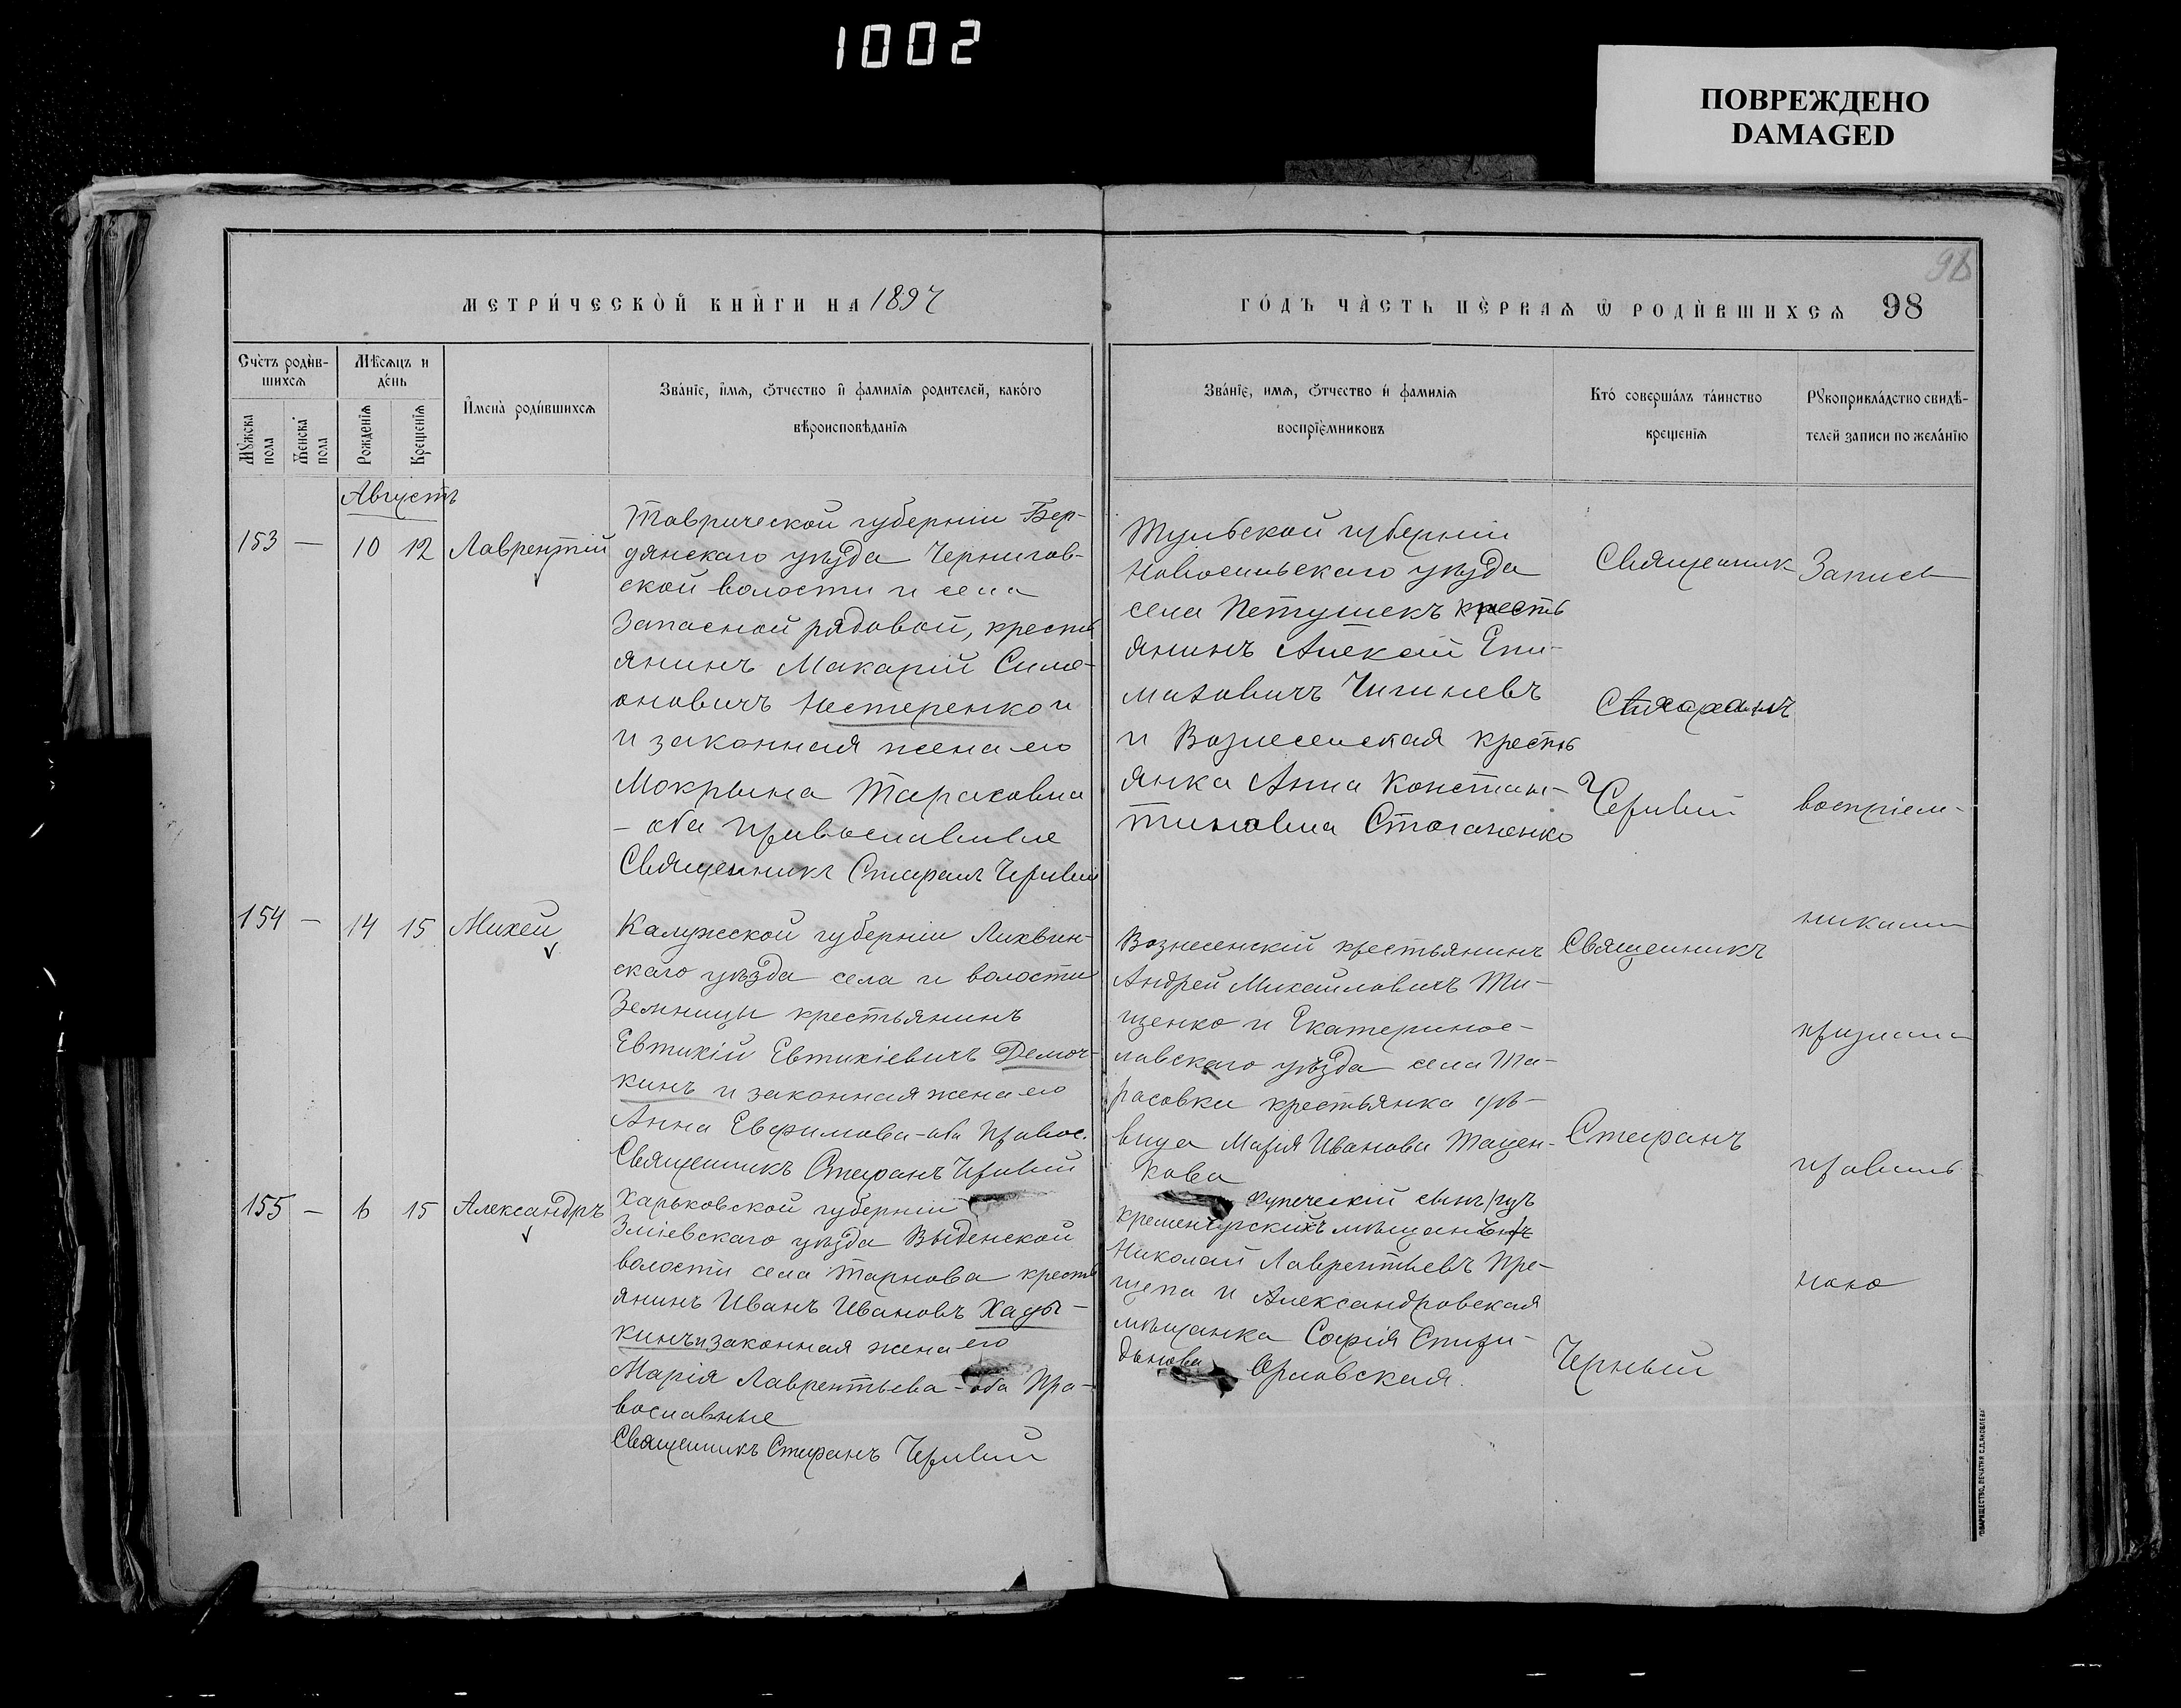 1002
ПОВРЕЖДЕНО
DAMAGED
96
МЕТРИ́ЧЕСКОЙ КНИ́ГИ НА 1897
ГО́ДЪ ЧА́СТЬ ПЕ́РВАѦ Ѿ РОДИ́ВШИХСѦ 98
Сче́тъ роди́в-
шихсѧ
Мѣ́сѧцъ и
де́нь
Мꙋ́жска
пола
Же́нска
пола
Рожденіѧ
Крещеніѧ
И҆мена̀ роди́вшихсѧ
Зва́ніе, и҆́мѧ, ѻ҆́тчество и҆ фамилія родителей, како́го
вѣроисповѣданіѧ
Зва́ніе, имѧ, ѻ҆́тчество и҆ фамилія
воспріе́мниковъ
Кто́ соверша́лъ та́инство
крещенія
Рꙋкоприкла́дство свидѣ-
телей записи по жела́нію
Августъ
153 — 10 12 Лаврентій
Таврической губерніи Бер-
дянскаго уѣзда Чернигов-
ской волости и села
Запасной рядовой, кресть
янинъ Макарій Симе-
оновичъ Нестеренко и
и законная жена его
Мокрына Тарасовна
— оба православные
Священникъ Стефанъ Черный
Тульской губерніи
Новосильскаго уѣзда
села Петушекъ кресть
янинъ Алексѣй Епи-
маховичъ
и Вознесенская кресть
янка Анна Констан-
тиновна
Священник
Стефанъ
Черный
Запись
воспріем-
никами
признана
правиль
ною
154 — 14 15 Михей
Калужской губерніи Лихвин-
скаго уѣзда села и волости
Земницы крестьянинъ
Евтихій Евтихіевичъ Демоч-
кинъ и законная жена его
Анна Евфимова — оба правос.
Священникъ Стефанъ Черный
Вознесенскій крестьянинъ
Андрей Михайловичъ Ти-
щенко и Екатеринос-
лавскаго уѣзда села Та-
расовки крестьянка дѣ-
вица Марія Иванова Тацен-
кова
Священникъ
Стефанъ
Черный
155 — 6 15 Александръ
Харьковской губерніи
Зміевскаго уѣзда
волости села Тарнова кресть
янинъ Иванъ Ивановъ Хады-
кинъ и законная жена его
Марія Лаврентьева — оба Пра-
вославные
Священникъ Стефанъ Черный
купеческій сынъ
кременчугскихъ
Николай Лаврентьевъ Пре-
щепа и Александровская
мѣщанка Софія Спири-
донова Орловская.
ТОВАРИЩЕСТВО „ПЕЧАТНЯ С.П.ЯКОВЛЕВА“